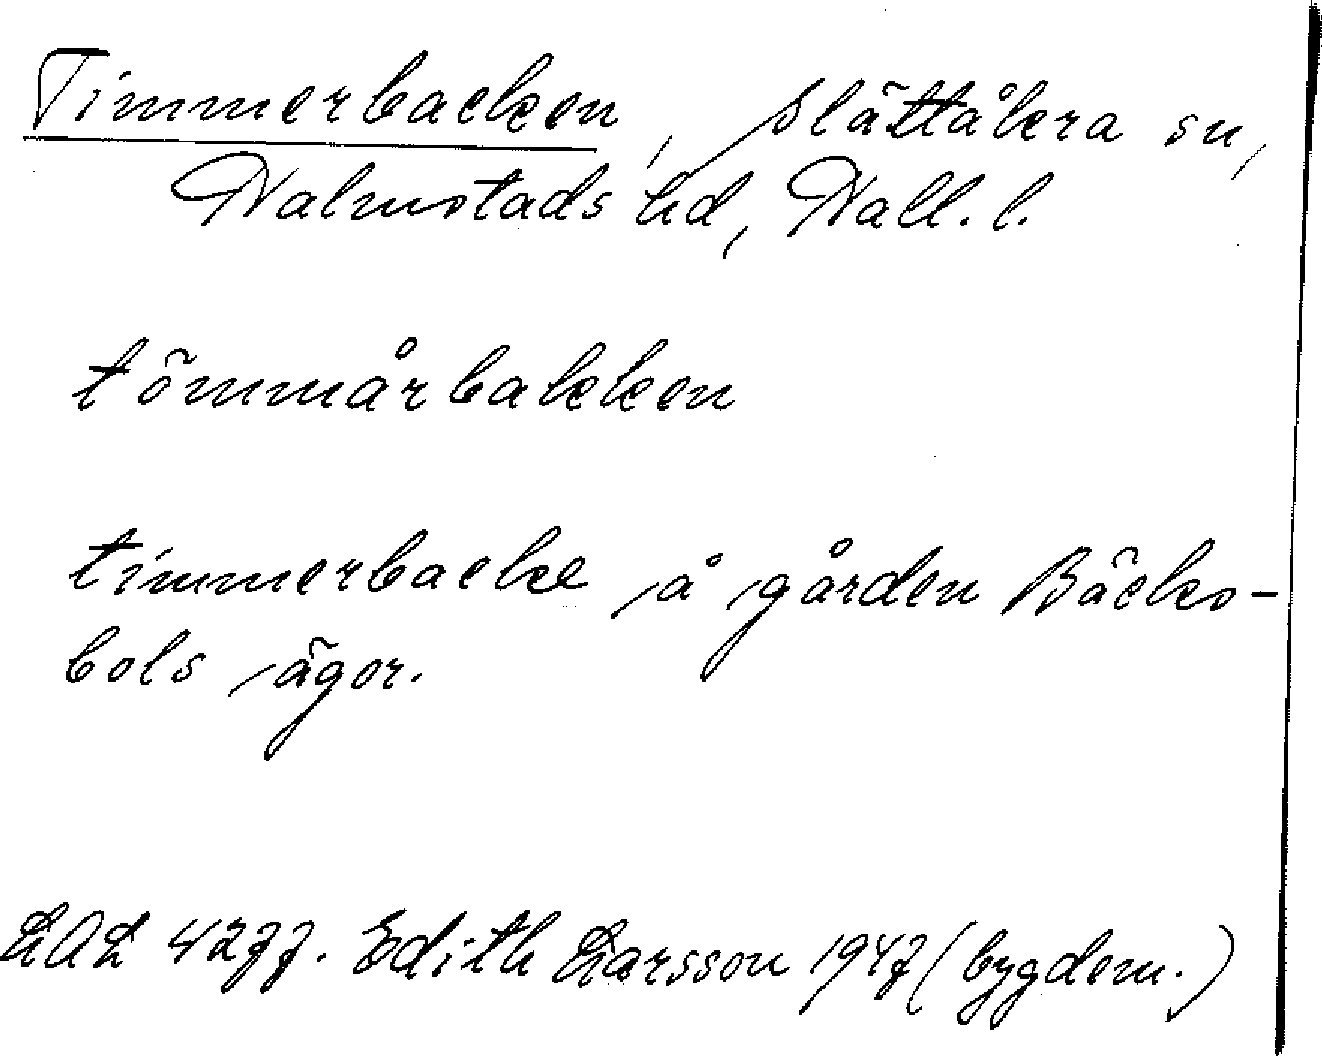 Timmerbacken, Slättåkra sn,
Halmstads hd, Hall. l.
tömmårbakken
timmerbacke å gården Bäcks-
bols ägor.
LAL 4277. Edith Larsson 1947 (bygdem.)